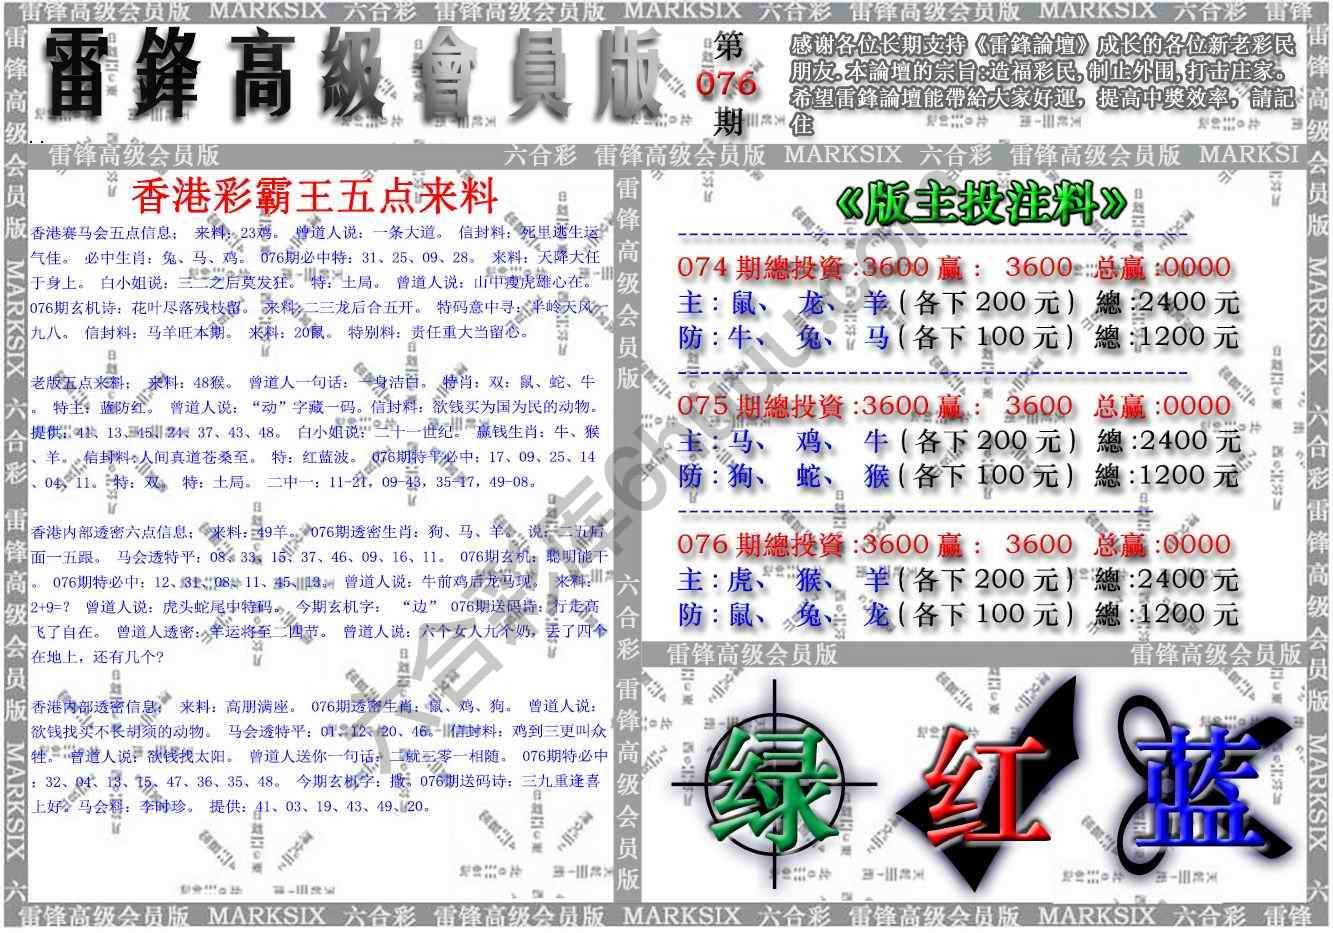 雷锋高级会员版 MARKSIX 六合彩 雷锋高級会员版 MARKSIX 六合彩 雷锋高級会员版 MARKSIX 六合彩 雷锋
雷鋒高級會員版
第
076
期
感谢各位长期支持《雷鋒論壇》成长的各位新老彩民
朋友.本論壇的宗旨:造福彩民,制止外围,打击庄家。
希望雷鋒論壇能帶給大家好運，提高中獎效率，請記
住
雷锋高级会员版
六合彩 雷锋高级会员版 MARKSIX 六合彩 雷锋高级会员版 MARKSI
雷锋高级会员版 MARKSIX 六合彩 雷锋高级会员版 MARKSIX 六
香港彩霸王五点来料
香港赛马会五点信息； 来料：23鸡。 曾道人说：一条大道。 信封料：死里逃生运
气佳。 必中生肖：兔、马、鸡。 076期必中特：31、25、09、28。 来料：天降大任
于身上。 白小姐说：三二之后莫发狂。 特：土局。 曾道人说：山中瘦虎雄心在。
076期玄机诗：花叶尽落残枝留。 来料：二三龙后合五开。 特码意中寻：半岭天风一
九八。 信封料：马羊旺本期。 来料：20鼠。 特别料：责任重大当留心。
老版五点来料； 来料：48猴。 曾道人一句话：一身洁白。 特肖：双：鼠、蛇、牛
。 特主：蓝防红。 曾道人说：“动”字藏一码。信封料：欲钱买为国为民的动物。
提供：41、13、45、24、37、43、48。 白小姐说：二十一世纪。 赢钱生肖：牛、猴
、羊。 信封料:人间真道苍桑至。 特：红蓝波。 076期特平必中：17、09、25、14
、04、11。 特：双。 特：土局。 二中一：11-21，09-43，35-17，49-08。
香港内部透密六点信息； 来料：49羊。 076期透密生肖：狗、马、羊。 说：二五后
面一五跟。 马会透特平：08、33、15、37、46、09、16、11。 076期玄机：聪明能干
。 076期特必中：12、31、08、11、45、13。 曾道人说：牛前鸡后龙马现。 来料：
2+9=? 曾道人说：虎头蛇尾中特码。 今期玄机字： “边” 076期送码诗：行走高
飞了自在。 曾道人透密：羊运将至二四节。 曾道人说：六个女人九个奶，丢了四个
在地上，还有几个?
香港内部透密信息； 来料：高朋满座。 076期透密生肖：鼠、鸡、狗。 曾道人说：
欲钱找买不长胡须的动物。 马会透特平：01、12、20、46。 信封料：鸡到三更叫众
牲。 曾道人说：欲钱找太阳。 曾道人送你一句话：二就三零一相随。 076期特必中
：32、04、13、15、47、36、35、48。 今期玄机字：撒。076期送码诗：三九重逢喜
上好。马会料：李时珍。 提供：41、03、19、43、49、20。
雷锋高级会员版 MARKSIX 六合彩 雷锋高级会员版
《版主投注料》
074 期總投資 :3600 赢 : 3600 总赢 :0000
主 : 鼠、 龙、 羊 ( 各下 200 元 ) 總 :2400 元
防 : 牛、 兔、 马 ( 各下 100 元 ) 總 :1200 元
075 期總投資 :3600 赢 : 3600 总赢 :0000
主 : 马、 鸡、 牛 ( 各下 200 元 ) 總 :2400 元
防 : 狗、 蛇、 猴 ( 各下 100 元 ) 總 :1200 元
076 期總投資 :3600 赢 : 3600 总赢 :0000
主 : 虎、 猴、 羊 ( 各下 200 元 ) 總 :2400 元
防 : 鼠、 兔、 龙 ( 各下 100 元 ) 總 :1200 元
雷锋高级会员版
雷锋高级会员版
绿 红 蓝
雷锋高级会员版 MARKSIX 六合彩 雷锋高级会员版 MARKSIX 六
雷锋高级会员版 MARKSIX 六合彩 雷锋高級会员版 MARKSIX 六合彩 雷锋高級会员版 MARKSIX 六合彩 雷锋